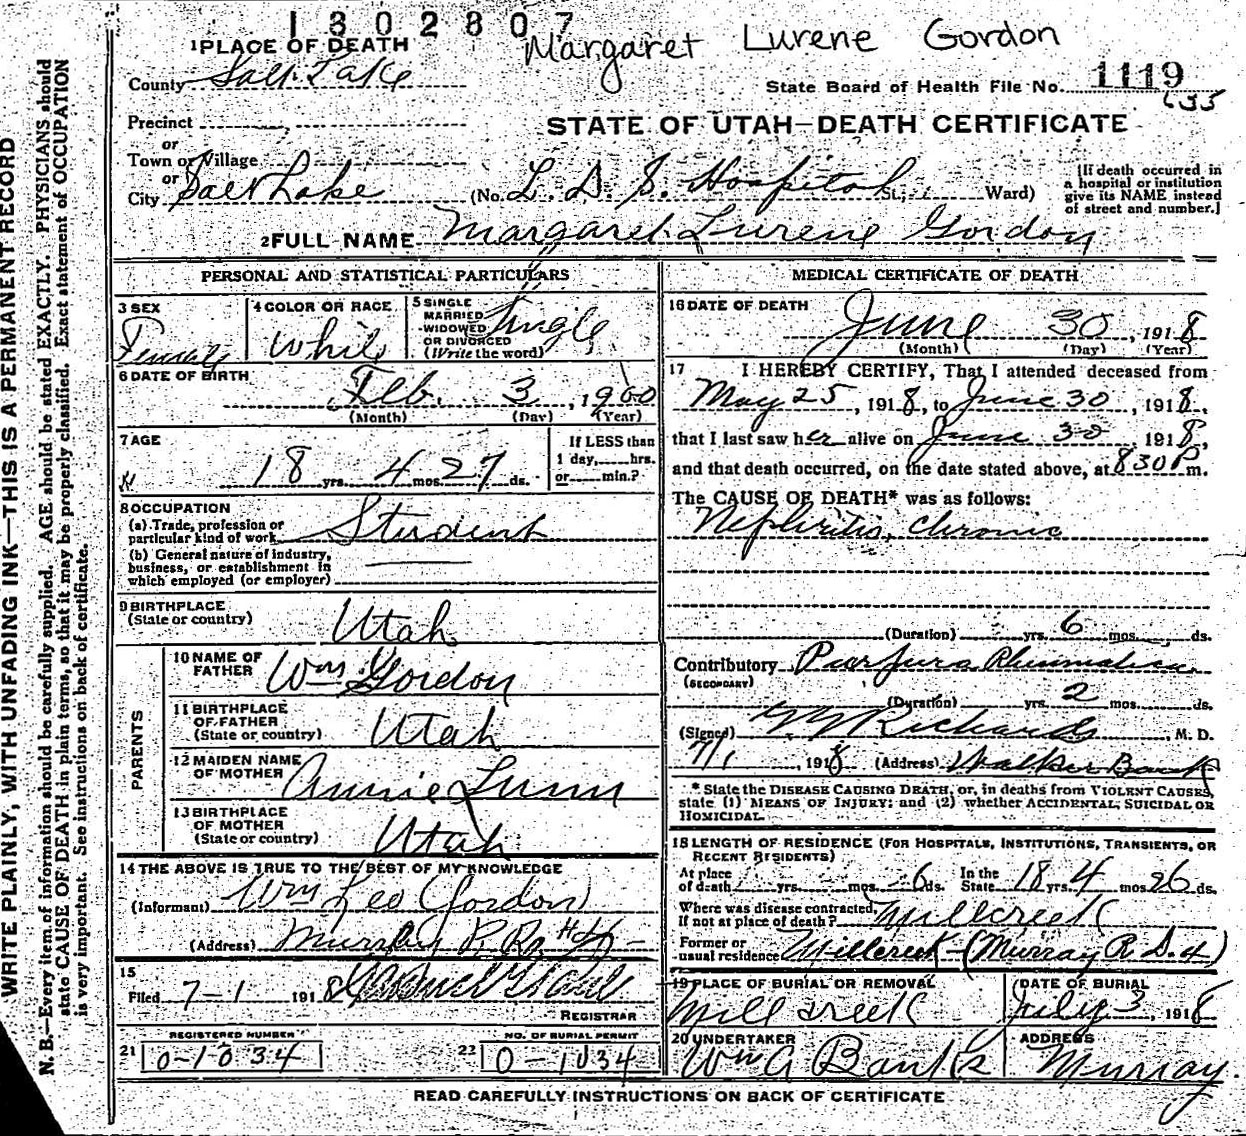 1302807
Margaret Lurene Gordon
1 PLACE OF DEATH
County Salt Lake
State Board of Health File No. 1119
635
Precinct
or
Town or Village
or
City Salt Lake
STATE OF UTAH—DEATH CERTIFICATE
(No. L. D. S. Hospital St.; Ward)
[If death occurred in
a hospital or institution
give its NAME instead
of street and number.]
2 FULL NAME Margaret Lurene Gordon
PERSONAL AND STATISTICAL PARTICULARS
3 SEX
Female
4 COLOR OR RACE
White
5 SINGLE
MARRIED
WIDOWED
OR DIVORCED
(Write the word)
Single
6 DATE OF BIRTH
Feb. 3, 1900
(Month) (Day) (Year)
7 AGE
18 yrs. 4 mos. 27 ds.
If LESS than
1 day, hrs.
or min.?
8 OCCUPATION
(a) Trade, profession or
particular kind of work Student
(b) General nature of industry,
business, or establishment in
which employed (or employer)
9 BIRTHPLACE
(State or country) Utah
PARENTS
10 NAME OF
FATHER Wm Gordon
11 BIRTHPLACE
OF FATHER
(State or country) Utah
12 MAIDEN NAME
OF MOTHER Annie Lunn
13 BIRTHPLACE
OF MOTHER
(State or country) Utah
14 THE ABOVE IS TRUE TO THE BEST OF MY KNOWLEDGE
(Informant) Wm Leo Gordon
(Address) Murray R. R. #4
15
Filed 7-1 1918
REGISTRAR
REGISTERED NUMBER
21 0-1034
NO. OF BURIAL PERMIT
22 0-1034
MEDICAL CERTIFICATE OF DEATH
16 DATE OF DEATH
June 30, 1918
(Month) (Day) (Year)
17 I HEREBY CERTIFY, That I attended deceased from
May 25, 1918, to June 30, 1918,
that I last saw her alive on June 30, 1918,
and that death occurred, on the date stated above, at 830 P m.
The CAUSE OF DEATH* was as follows:
Nephritis, chronic
(Duration) yrs. 6 mos. ds.
Contributory Purpura Rheumatica
(SECONDARY)
(Duration) yrs. 2 mos. ds.
(Signed) Richards, M. D.
7/1, 1918 (Address) Walker Bank
* State the DISEASE CAUSING DEATH, or, in deaths from VIOLENT CAUSES,
state (1) MEANS OF INJURY; and (2) whether ACCIDENTAL, SUICIDAL OR
HOMICIDAL.
18 LENGTH OF RESIDENCE (FOR HOSPITALS, INSTITUTIONS, TRANSIENTS, OR
RECENT RESIDENTS)
At place
of death yrs. mos. 6 ds.
In the
State 18 yrs. 4 mos. 26 ds.
Where was disease contracted,
If not at place of death? Millcreek
Former or
usual residence Millcreek (Murray R. D. 4)
19 PLACE OF BURIAL OR REMOVAL
Mill creek
DATE OF BURIAL
July 3, 1918
20 UNDERTAKER
Wm A Banks
ADDRESS
Murray.
READ CAREFULLY INSTRUCTIONS ON BACK OF CERTIFICATE
WRITE PLAINLY, WITH UNFADING INK—THIS IS A PERMANENT RECORD
N. B.—Every item of information should be carefully supplied. AGE should be stated EXACTLY. PHYSICIANS should
state CAUSE OF DEATH in plain terms, so that it may be properly classified. Exact statement of OCCUPATION
is very important. See instructions on back of certificate.